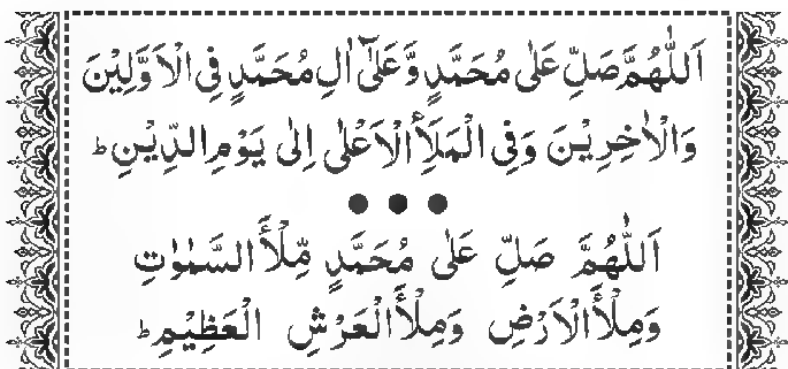 اَللّٰهُمَّ صَلِّ عَلٰی مُحَمَّدٍ وَّعَلٰۤی اٰلِ مُحَمَّدٍ فِی الْاَوَّلِیْنَ
وَالْاٰخِرِیْنَ وَفِی الْمَلَأِ الْاَعْلٰی اِلٰی یَوْمِ الدِّیْنِ ط
اَللّٰهُمَّ صَلِّ عَلٰی مُحَمَّدٍ مِّلْأَ السَّمٰوٰتِ
وَمِلْأَ الْاَرْضِ وَمِلْأَ الْعَرْشِ الْعَظِیْمِ ط